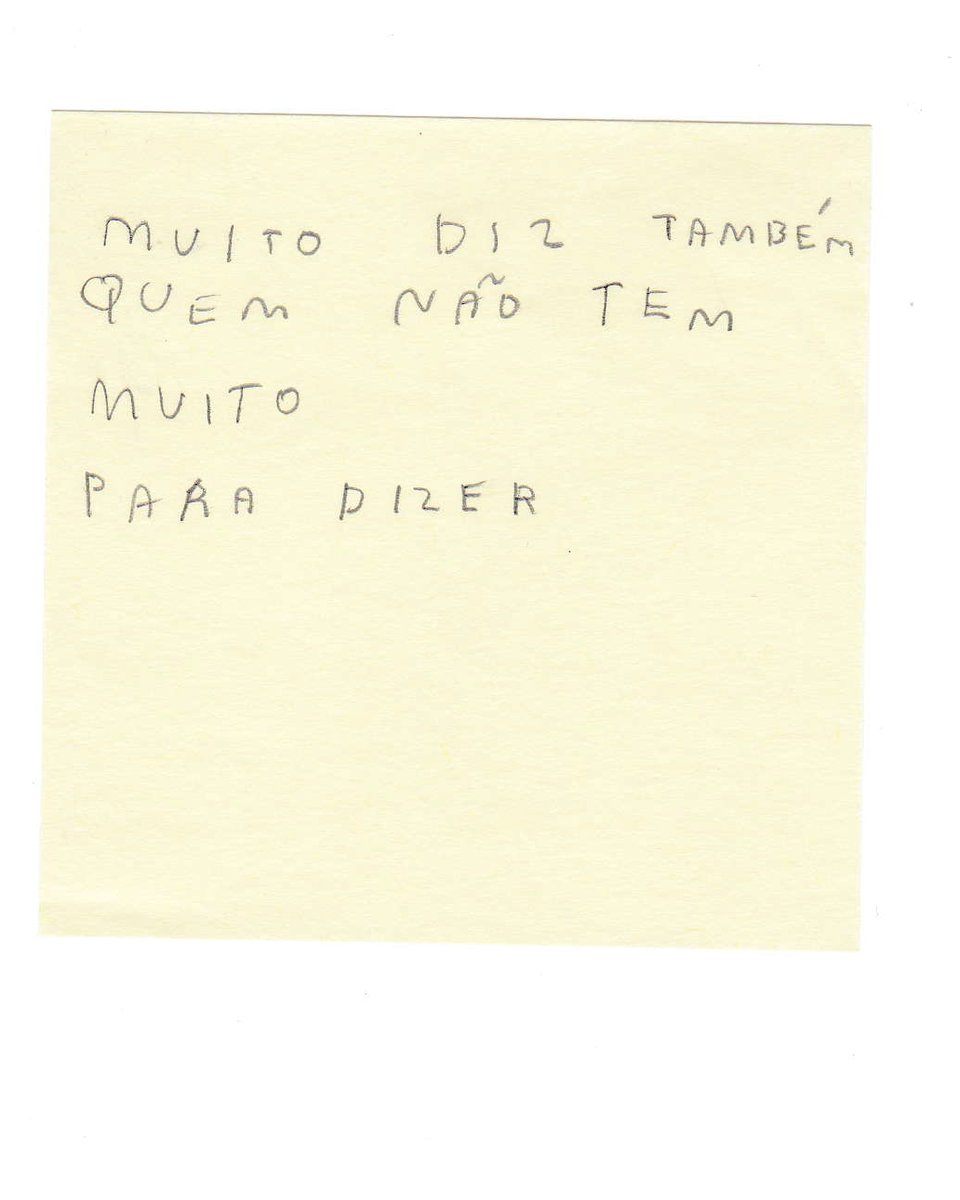 MUITO DIZ TAMBÉM
QUEM NÃO TEM
MUITO
PARA DIZER